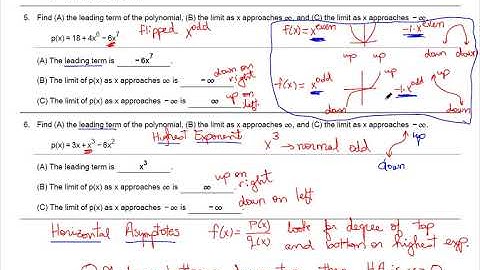 5. Find (A) the leading term of the polynomial, (B) the limit as x approaches ∞, and (C) the limit as x approaches −∞.
p(x) = 18 + 4x⁶ − 6x⁷ flipped x^odd
(A) The leading term is −6x⁷.
(B) The limit of p(x) as x approaches ∞ is −∞ down on right
(C) The limit of p(x) as x approaches −∞ is ∞ up on left.
f(x) = x^even −1·x^even
up up down down
f(x) = x^odd up up −1·x^odd
down down
6. Find (A) the leading term of the polynomial, (B) the limit as x approaches ∞, and (C) the limit as x approaches −∞.
p(x) = 3x + x³ − 6x² Highest Exponent x³ → normal odd up
down
(A) The leading term is x³.
(B) The limit of p(x) as x approaches ∞ is ∞ up on right
(C) The limit of p(x) as x approaches −∞ is −∞ down on left
Horizontal Asymptotes f(x) = p(x)/q(x) look for degree of top
and bottom or highest exp.